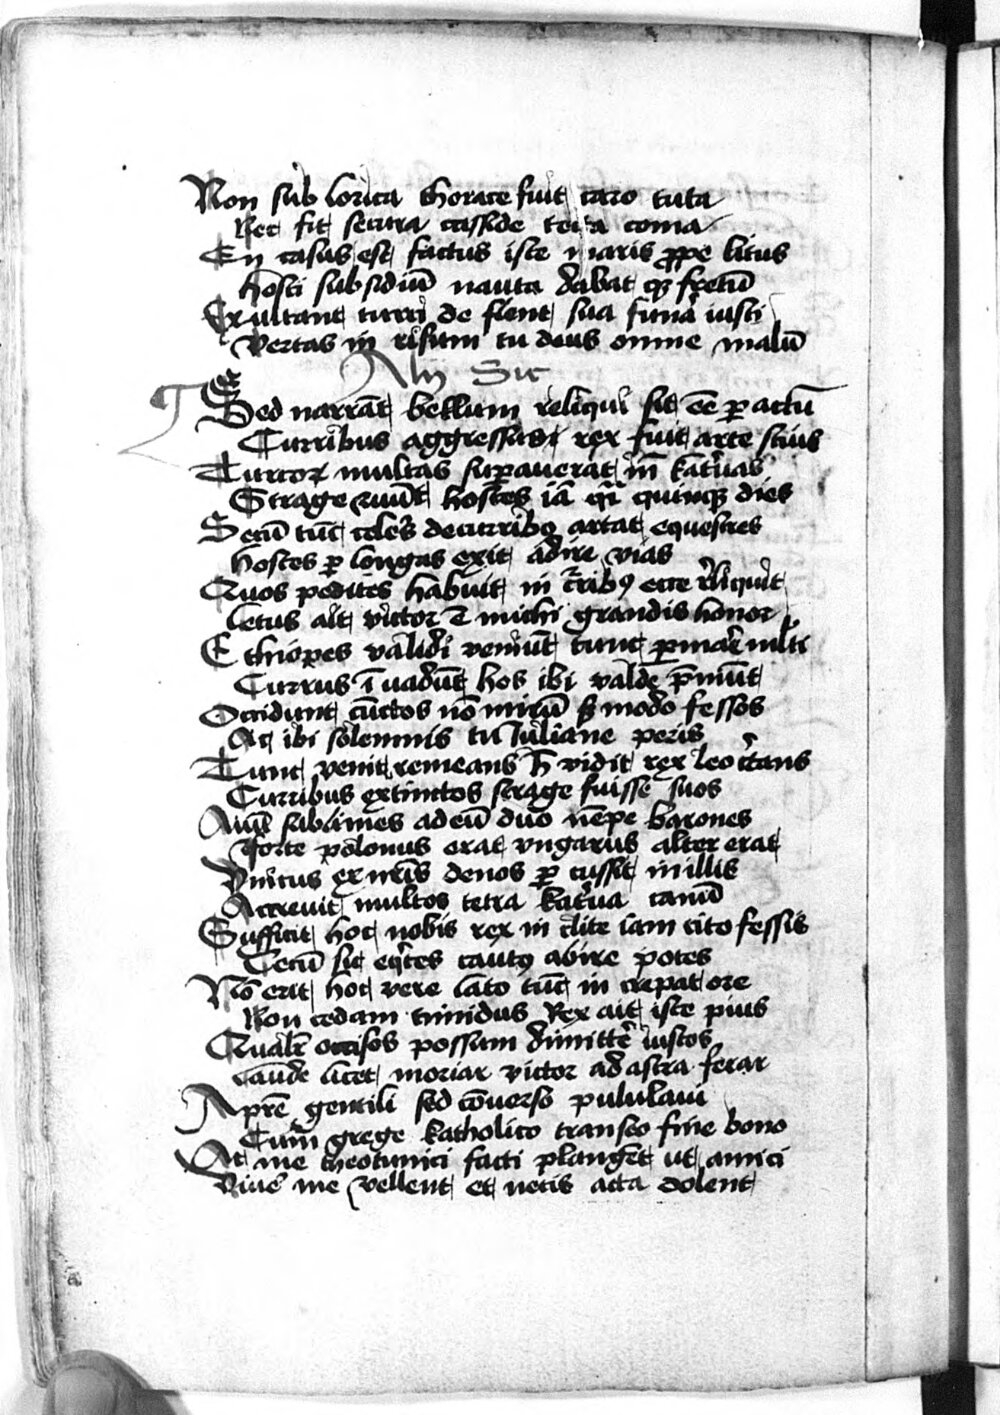 Non sub lorica thorace fuit caro tuta
Nec fit secura casside coma
En casus est factus iste maris ꝓpe litus
Hosti subsidiū nauta dabat ꝙ fretū
Exultant turci de flent sua funera iusti
Vertas in risum tu deus omne malū
Alij Sic
Et
Sed narrāt bellum reliqui sic eē ꝑactū
Curribus aggressus rex fuit arte scius
Turcoꝝ multas suꝑauerat katʾuas
Strage ruūt hostes iā qͣi quinqꝫ dies
Secū tūc celeʾs de curribꝫ artat equestres
Hostes ꝑ longas exit adire vias
Quos pedites habuit in cʾribꝰ ecce rʾliquit
Letus ait victor ē michi grandis honor
Ethiopes validi veniūt tunc ꝑ mare mlʾti
Currus īuadūt hos ibi valde p̄mūt
Occidunt cūctos nō mirū modo fessos
Ac ibi solemnis tu Juliane peris
Tunc venit remeans vidit rex leo
Curribus extinctos strage fuisse suos
ad eū duo nēpe barones
Forte polonus erat vngarus alter erat
Vnitus ex nrīs denos ꝑcussit in illis
Accreuit multos tetra katʾua canū
Sufficit hoc nobis rex inclite iam cito fessis
Tecū sic eqʾtes cautꝰ abire potes
Nō erit hoc vere lʾato tūc increpat ore
Non cedam timidus Rex ait iste pius
Qualʾr occisos possum dimittʾe iustos
Laude licet moriar victor ad astra ferar
A prē gentili sed cōuerso pululaui
Cum grege katholico transeo fine bono
At me theotunici facti plangēt vt amici
Viuʾe me vellent et necis acta dolent